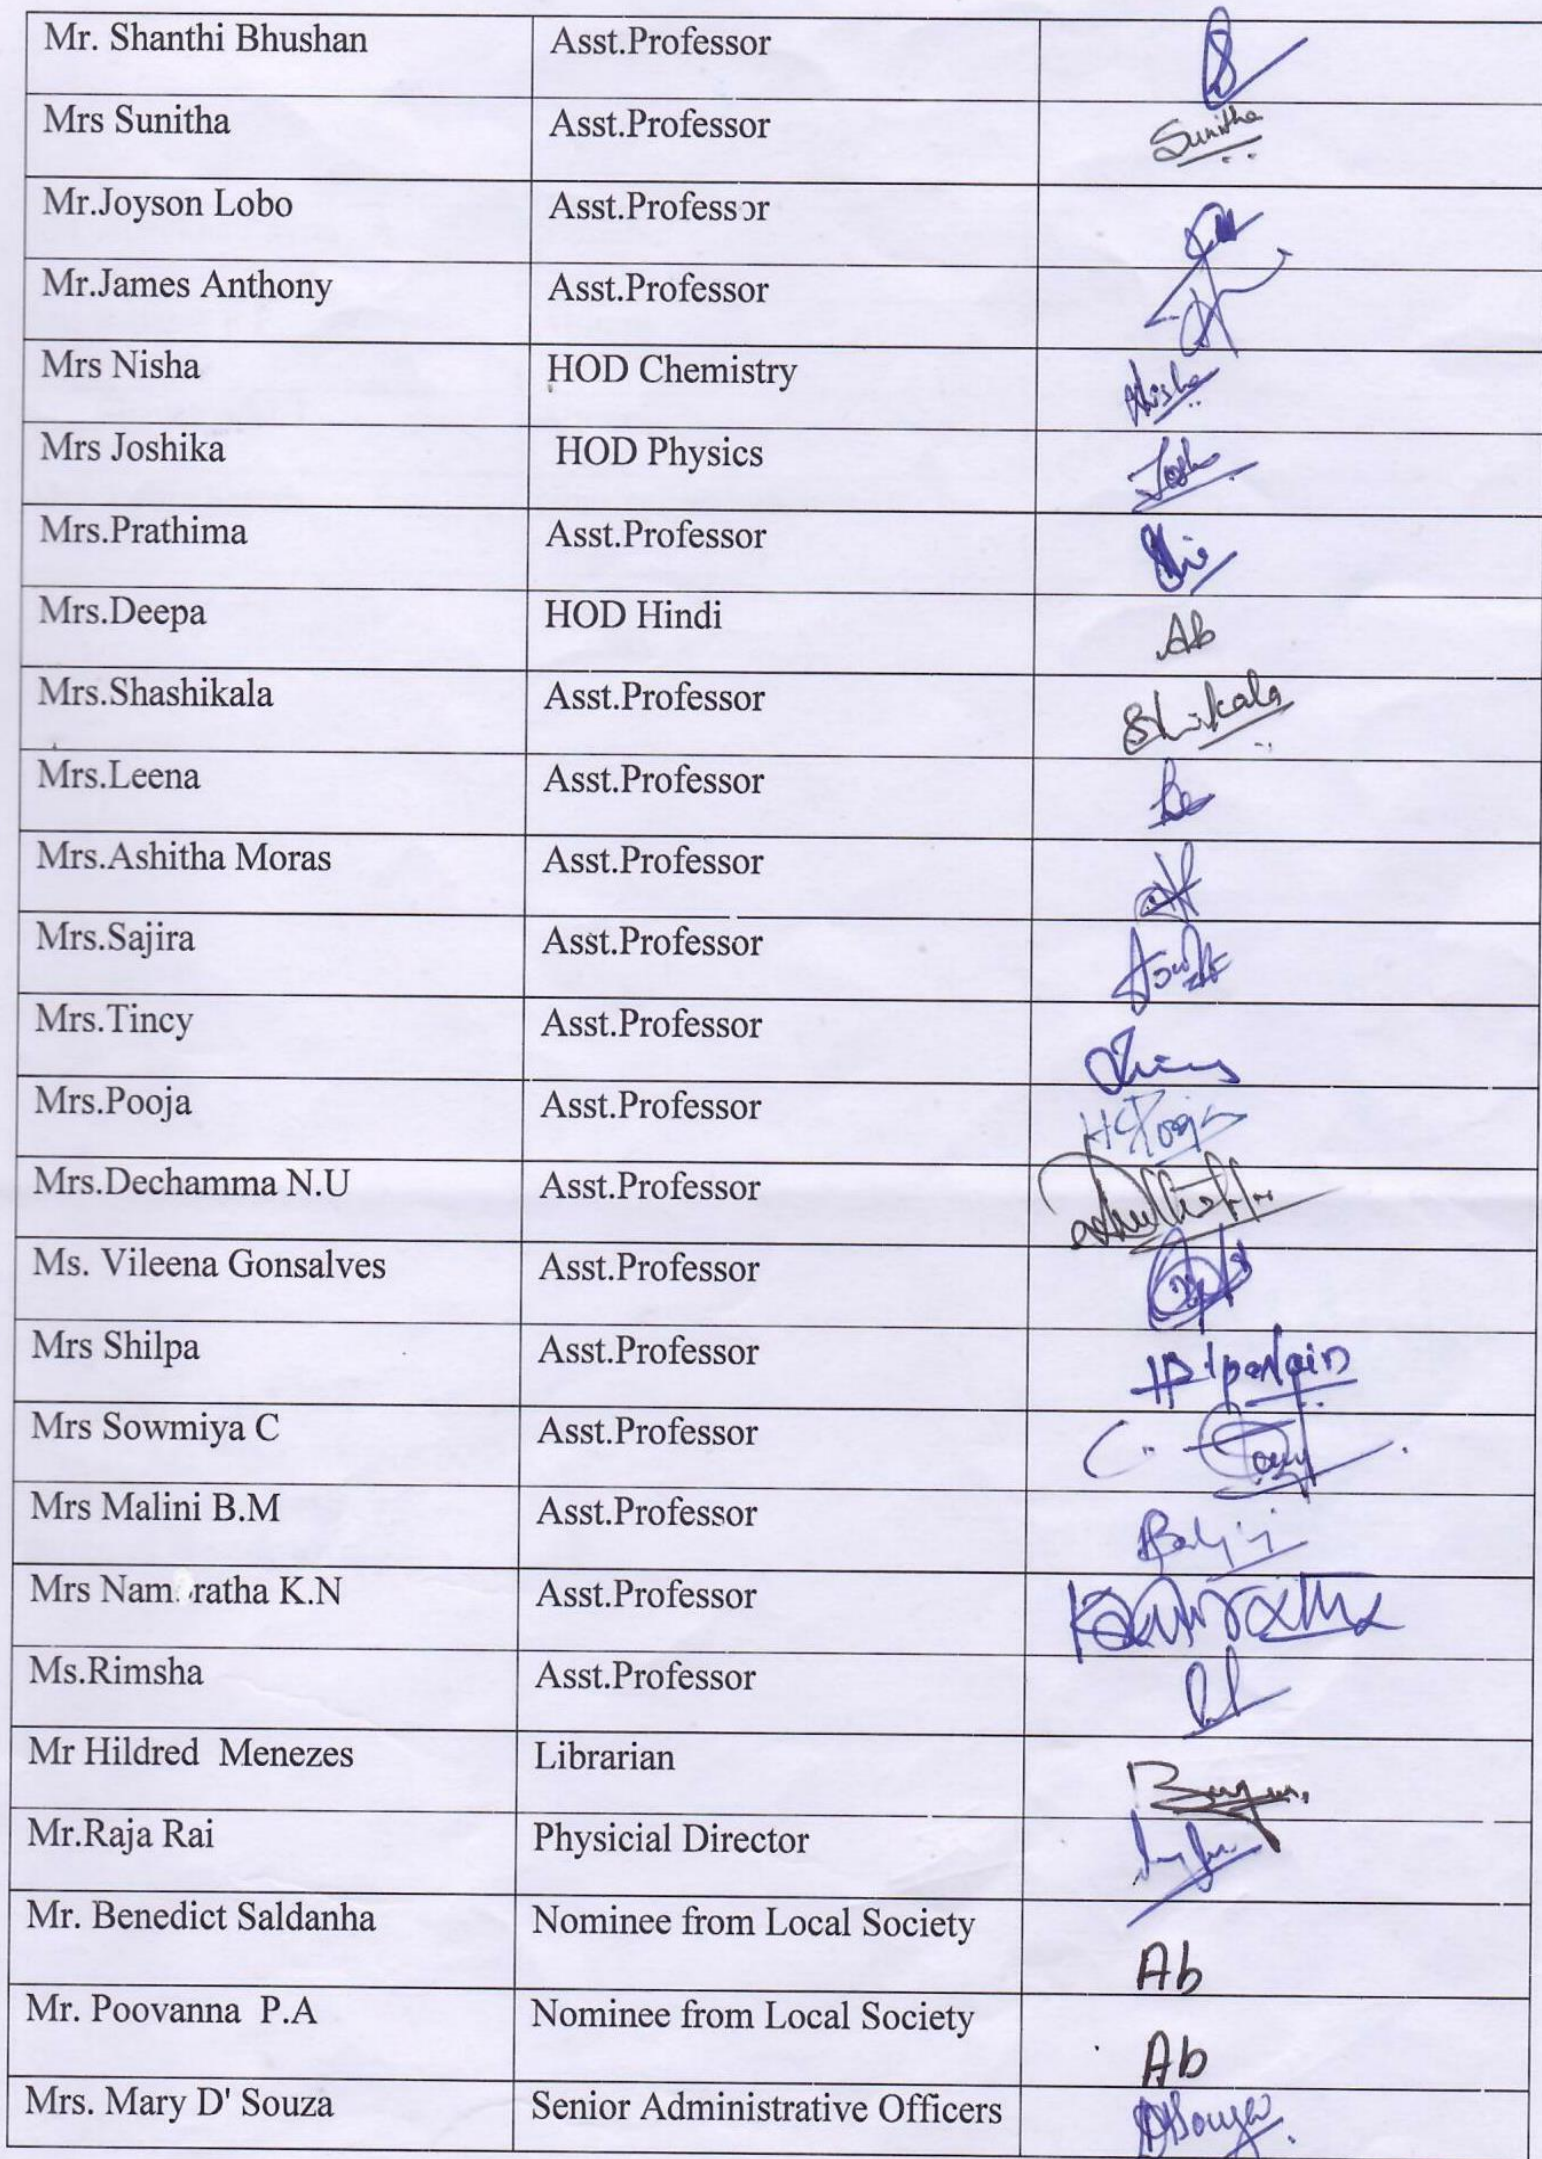 Mr. Shanthi Bhushan Asst.Professor
Mrs Sunitha Asst.Professor Sunitha
Mr.Joyson Lobo Asst.Professor
Mr.James Anthony Asst.Professor
Mrs Nisha HOD Chemistry Nisha
Mrs Joshika HOD Physics Josh
Mrs.Prathima Asst.Professor
Mrs.Deepa HOD Hindi Ab
Mrs.Shashikala Asst.Professor
Mrs.Leena Asst.Professor
Mrs.Ashitha Moras Asst.Professor
Mrs.Sajira Asst.Professor
Mrs.Tincy Asst.Professor
Mrs.Pooja Asst.Professor
Mrs.Dechamma N.U Asst.Professor
Ms. Vileena Gonsalves Asst.Professor
Mrs Shilpa Asst.Professor
Mrs Sowmiya C Asst.Professor
Mrs Malini B.M Asst.Professor
Mrs Nam ratha K.N Asst.Professor
Ms.Rimsha Asst.Professor
Mr Hildred Menezes Librarian
Mr.Raja Rai Physicial Director
Mr. Benedict Saldanha Nominee from Local Society Ab
Mr. Poovanna P.A Nominee from Local Society Ab
Mrs. Mary D' Souza Senior Administrative Officers